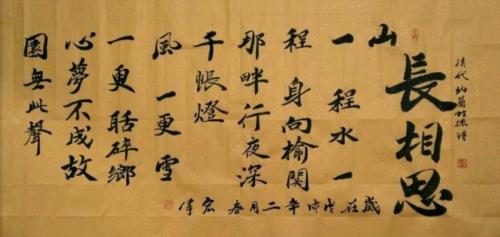 長相思
清代 納蘭性德詩
山
一程水一
程身向榆關
那畔行夜深
千帳燈
風一更雪
一更聒碎鄉
心夢不成故
園無此聲
歲在戊戌年二月春 宏偉